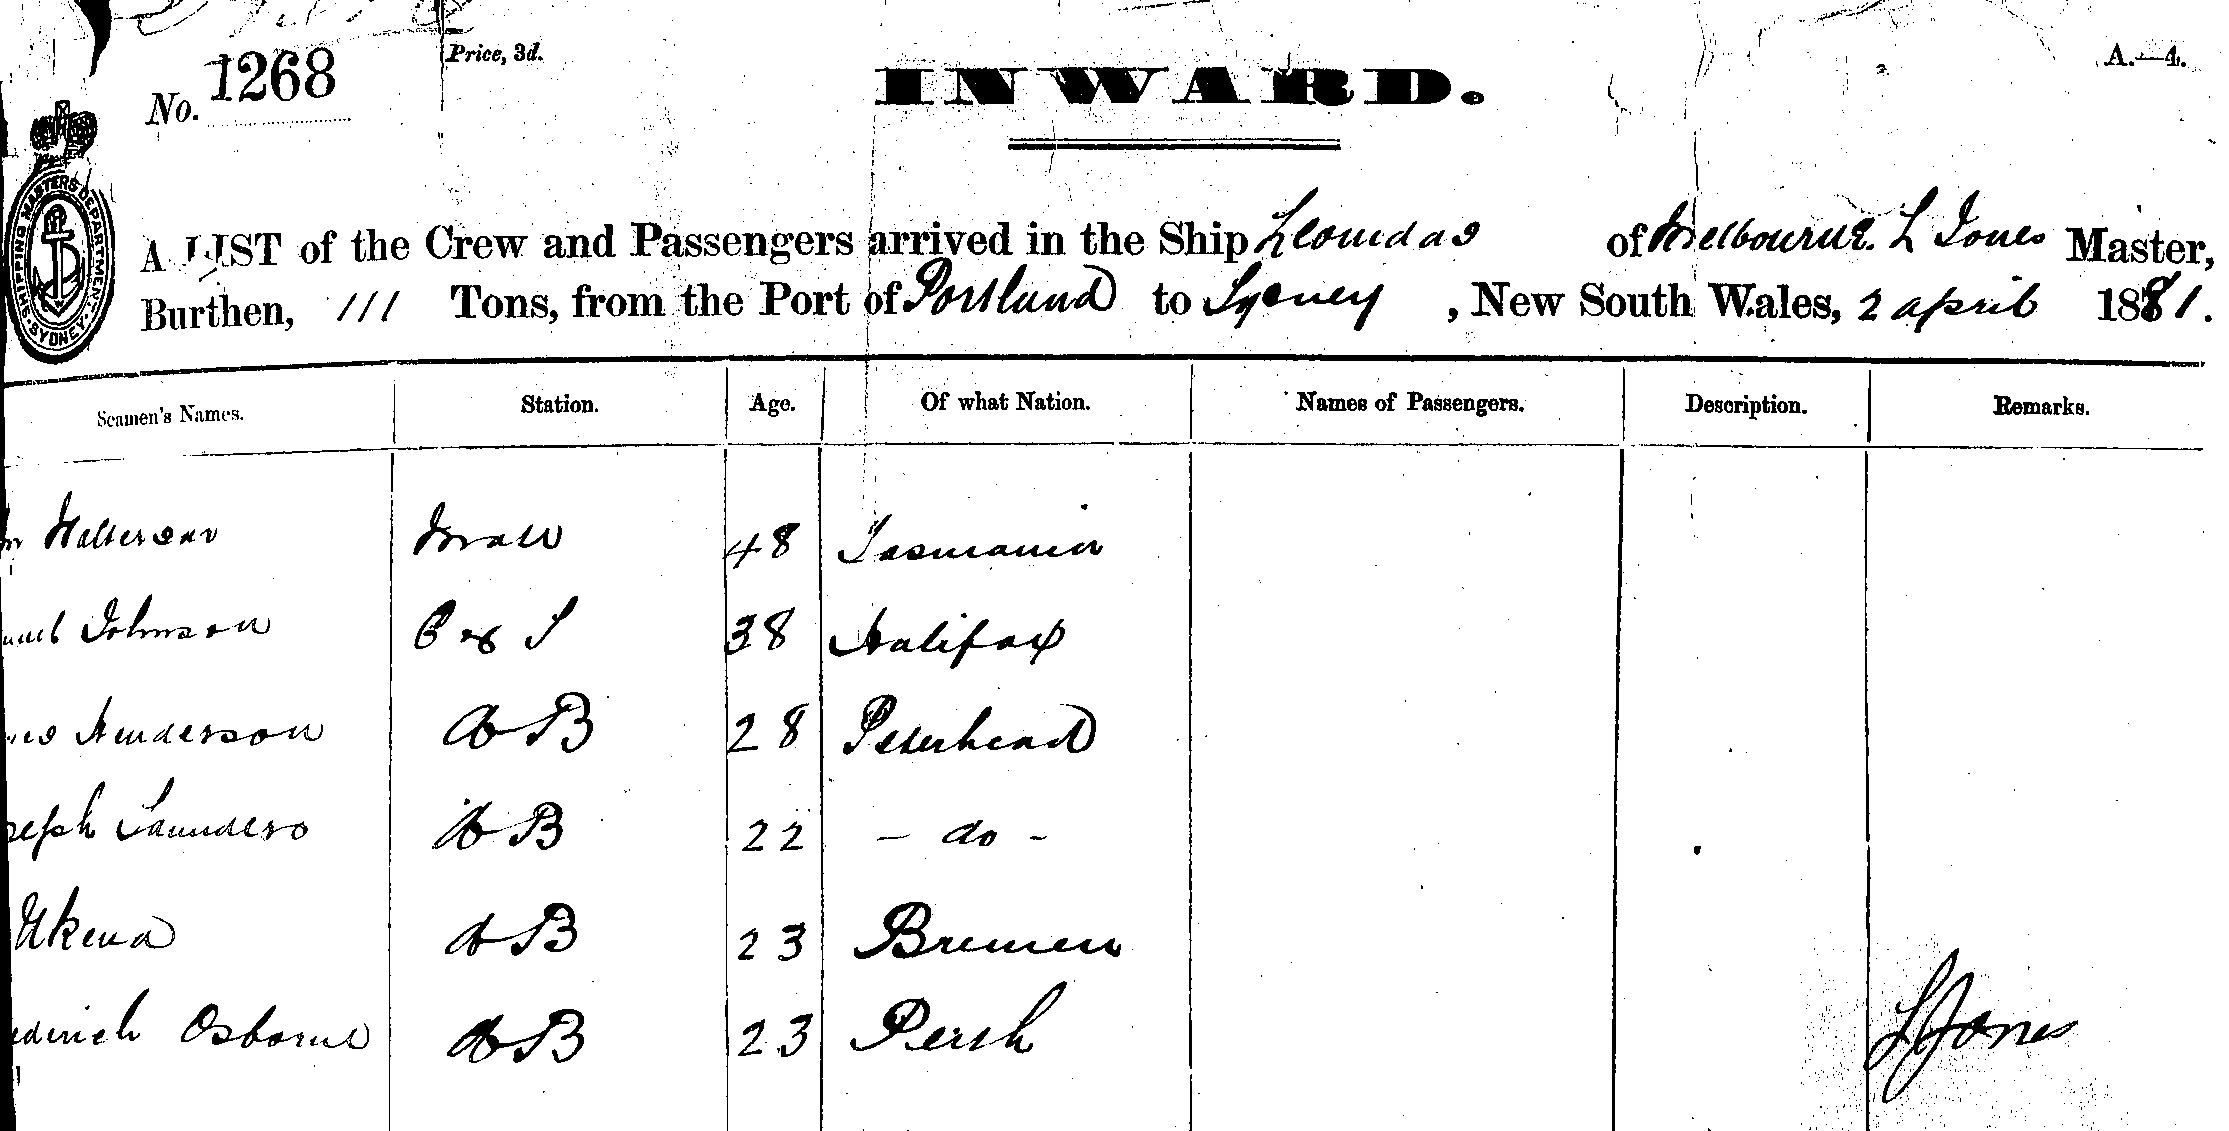 No. 1268
Price, 3d.
INWARD.
A.—4.
SHIPPING MASTERS DEPARTMENT SYDNEY
A LIST of the Crew and Passengers arrived in the Ship Leonidas of Melbourne. L Jones Master,
Burthen, 111 Tons, from the Port of Portland to Sydney, New South Wales, 2 april 1881.
Seamen's Names. Station. Age. Of what Nation. Names of Passengers. Description. Remarks.
Mate 48 Tasmania
Johnson C & S 38 Halifax
Henderson AB 28 Peterhead
Saunders AB 22 - do -
Ukena AB 23 Bremen
Osborne AB 23 Perth
L Jones